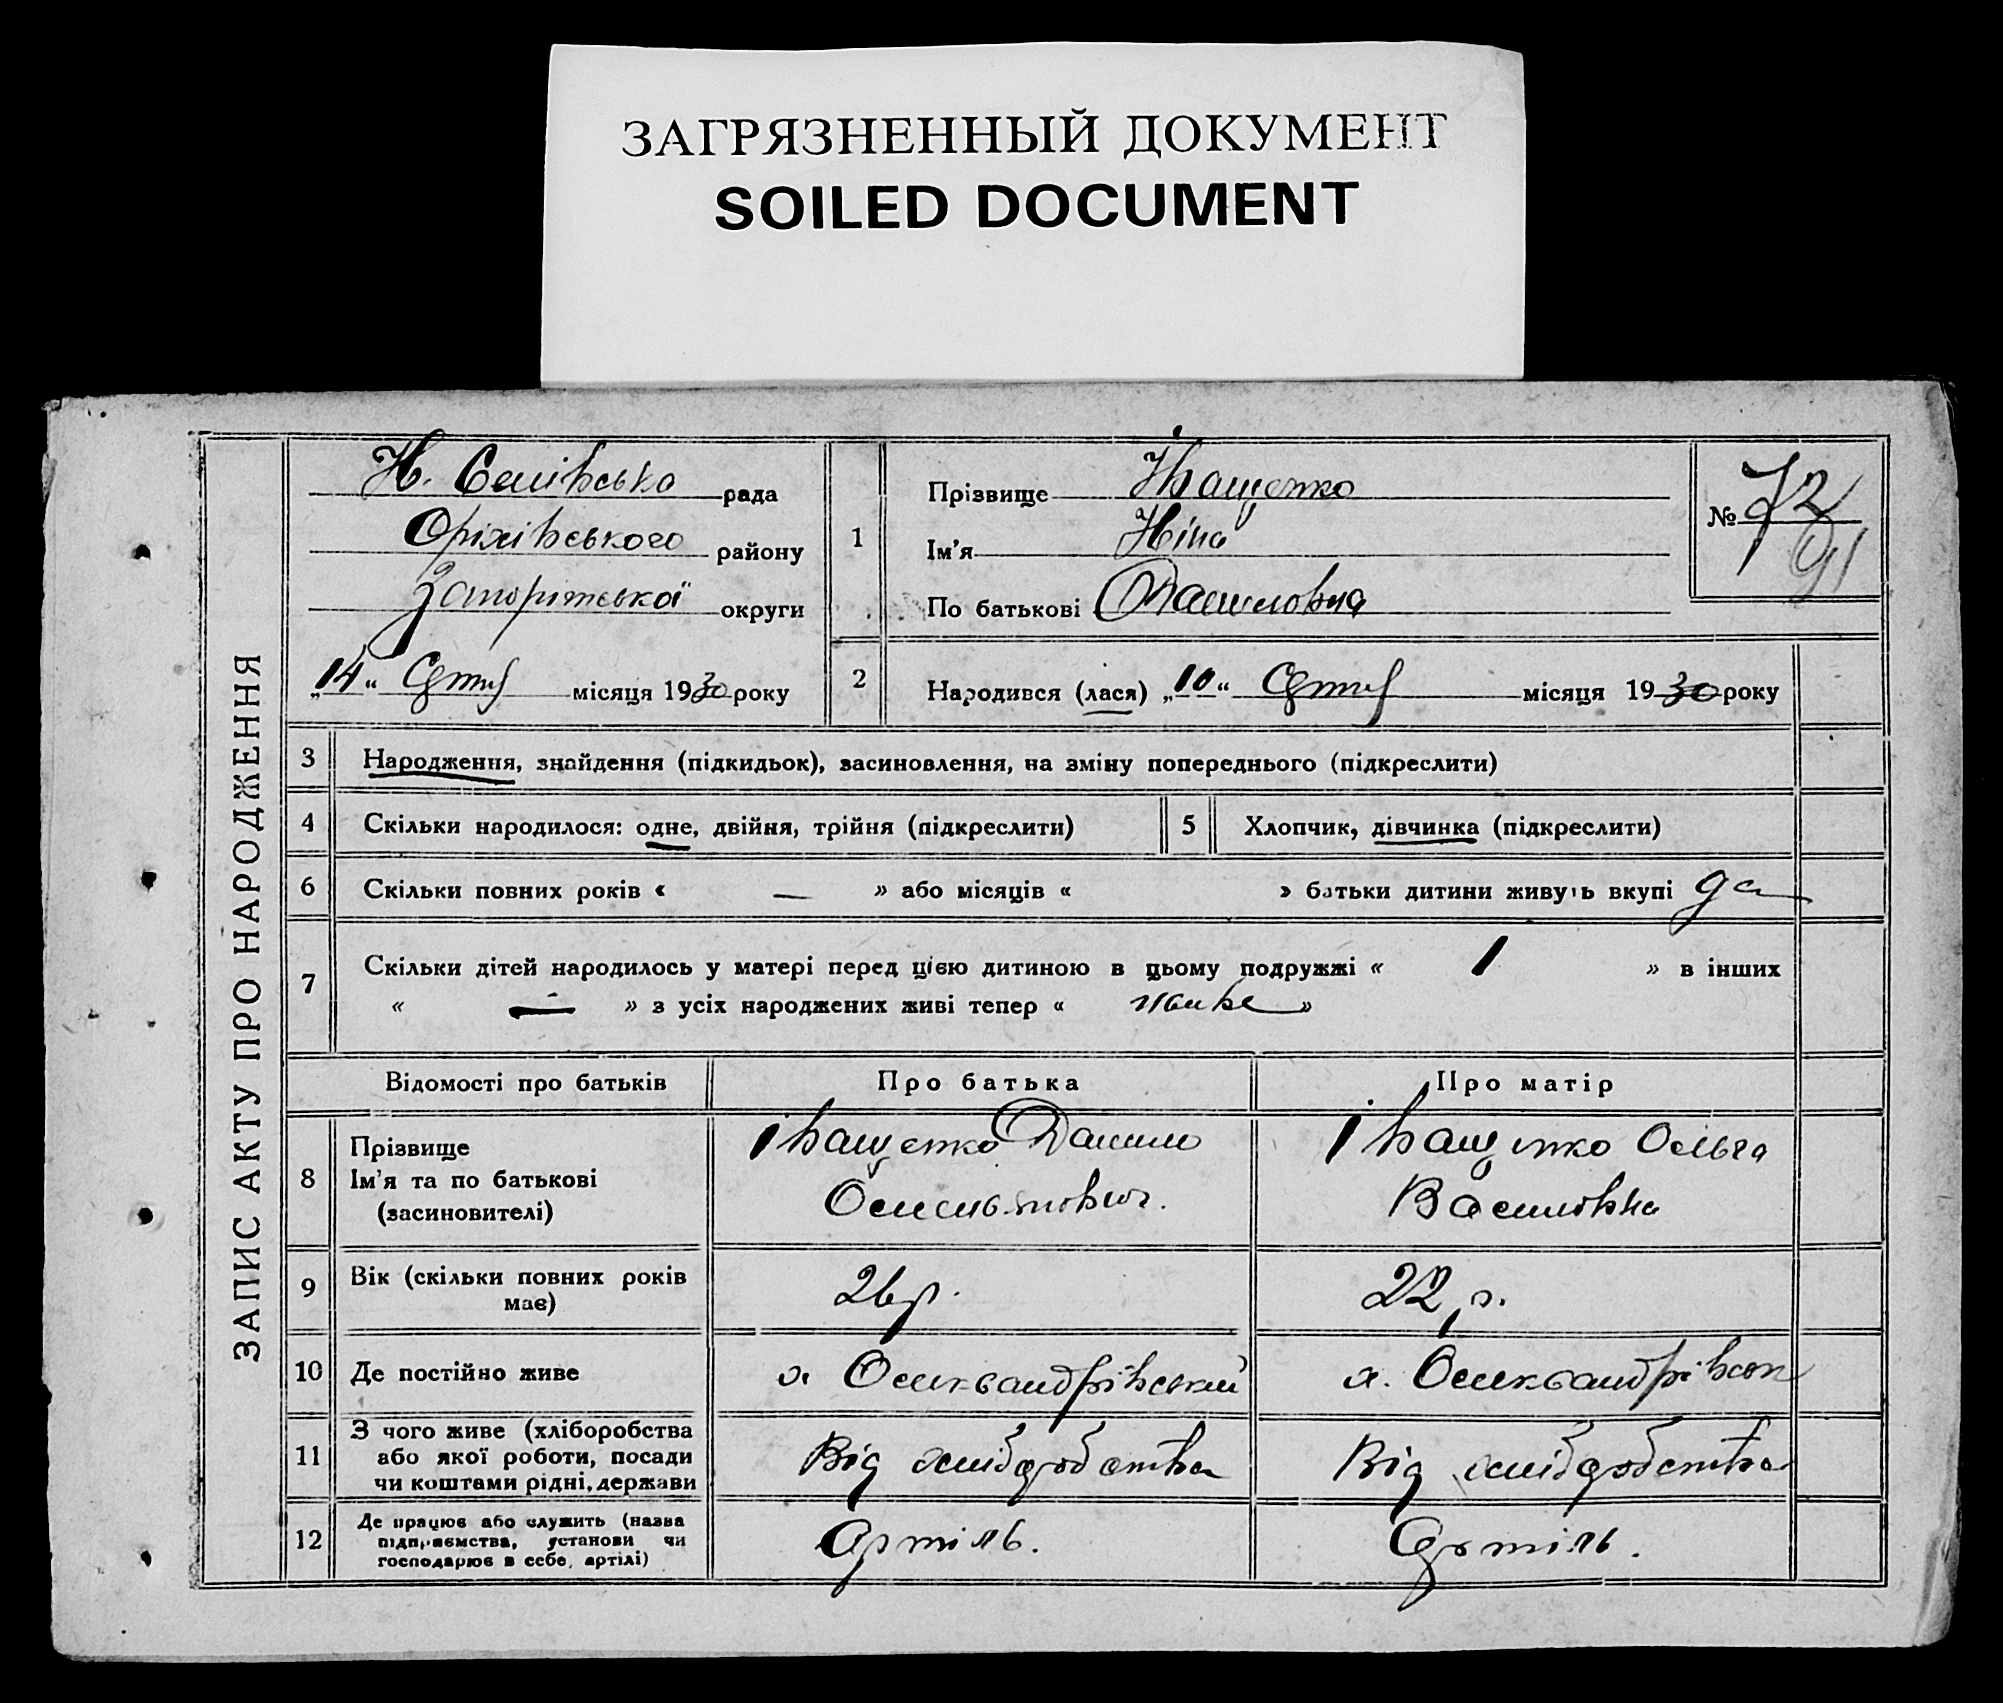 ЗАГРЯЗНЕННЫЙ ДОКУМЕНТ
SOILED DOCUMENT
ЗАПИС АКТУ ПРО НАРОДЖЕННЯ
рада
Оріхівського району
Запоріжської округи
„14“ місяця 1930 року
1
Прізвище Іващенко
Ім’я Ніна
По батькові Даниловна
№ 72
91
2
Народився (лася) „10“ місяця 1930 року
3 Народження, знайдення (підкидьок), засиновлення, на зміну попереднього (підкреслити)
4 Скільки народилося: одне, двійня, трійня (підкреслити)
5 Хлопчик, дівчинка (підкреслити)
6 Скільки повних років « — » або місяців « » батьки дитини живуть вкупі да
7 Скільки дітей народилось у матері перед цією дитиною в цьому подружжі « 1 » в інших
« — » з усіх народжених живі тепер « живе »
Відомості про батьків Про батька Про матір
8 Прізвище
Ім’я та по батькові
(засиновителі)
Іващенко Данило
Омельянович.
Іващенко Ольга
Василовна
9 Вік (скільки повних років
має)
26 р.
22 р.
10 Де постійно живе
х Олександрівський
х. Олександрівськ
11 З чого живе (хліборобства
або якої роботи, посади
чи коштами рідні, держави
Від хліборобства
Від хліборобства
12 Де працює або служить (назва
підприємства, установи чи
господарює в себе, артілі)
Артіль.
Артіль.